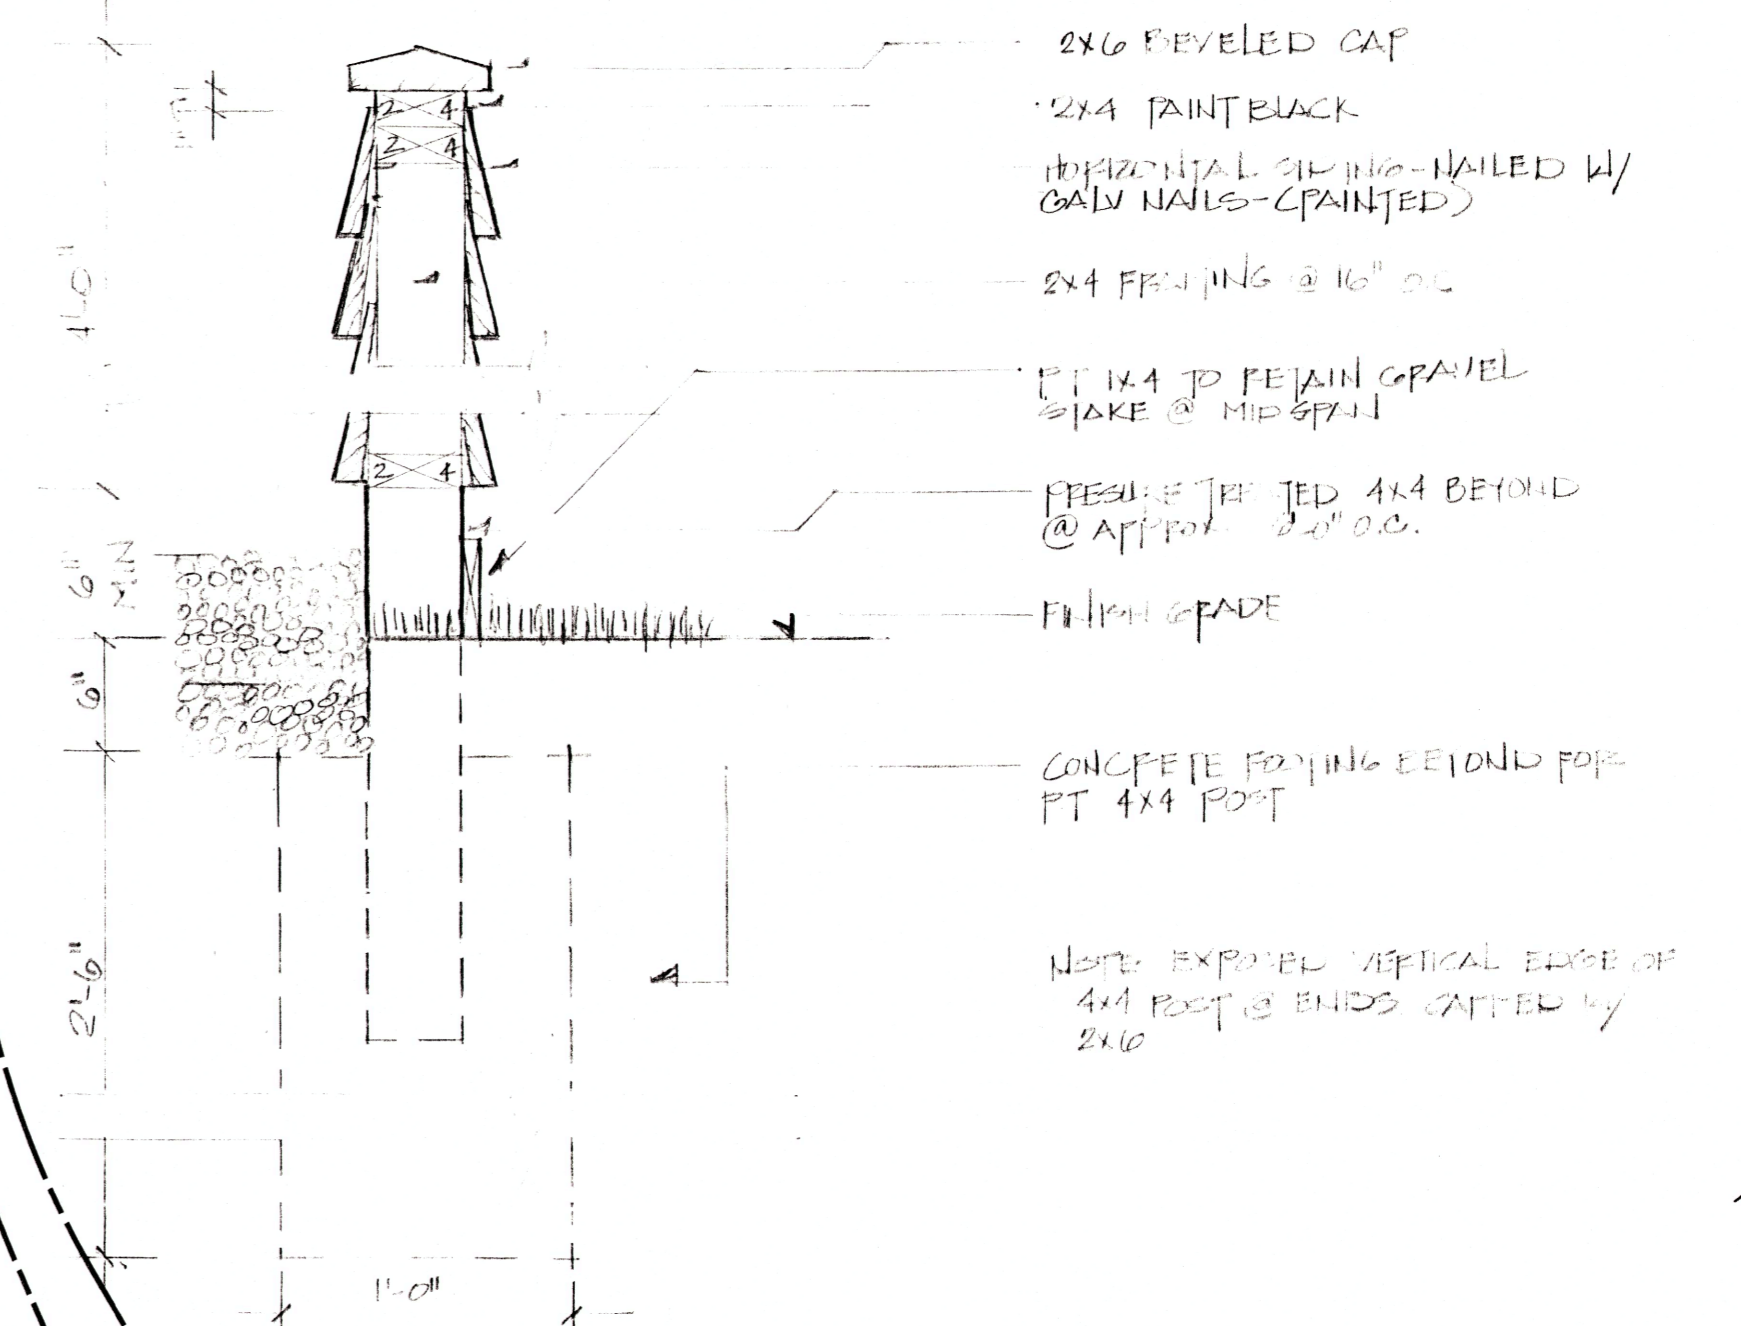 2X6 BEVELED CAP
2X4 PAINT BLACK
HORIZONTAL SIDING-NAILED W/
GALV NAILS-(PAINTED)
2X4 FRAMING @ 16" O.C.
PT 1X4 TO RETAIN GRAVEL
STAKE @ MIDSPAN
PRESSURE TREATED 4X4 BEYOND
@ APPROX. O.C.
FINISH GRADE
CONCRETE FOOTING BEYOND FOR
PT 4X4 POST
NOTE: EXPOSED VERTICAL EDGE OF
4X4 POST @ ENDS CAPPED W/
2X6
2 4
2 4
4'-0"
2 4
6"
MIN
6"
2'-6"
1'-0"